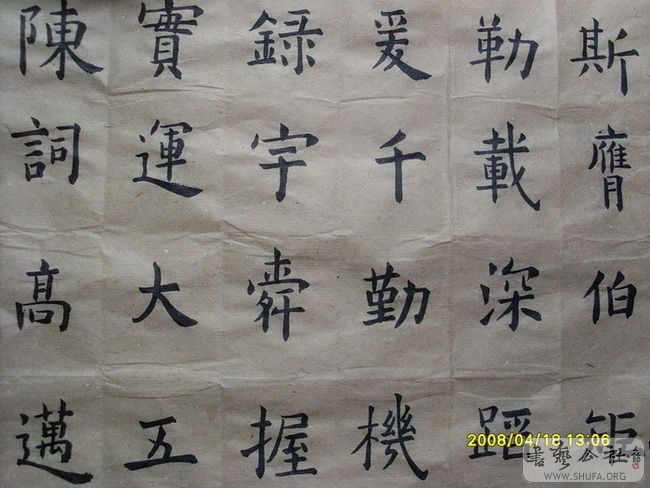 陳實錄爰勒斯
詞運宇千載膺
高大舜勤深伯
邁五握機蹈矩
2008/04/18 13:06
書藝公社
WWW.SHUFA.ORG